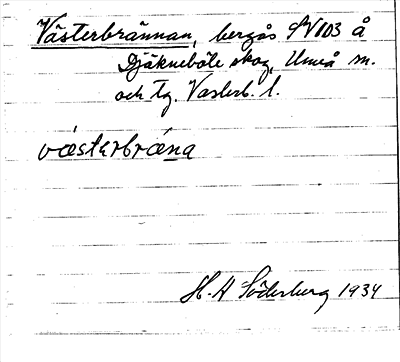 Västerbrännan, bergås SV 103 å
Djäkneböle skog, Umeå sn.
och tg. Vasterb. l.
væsterbrǽna
H. A Söderberg 1934